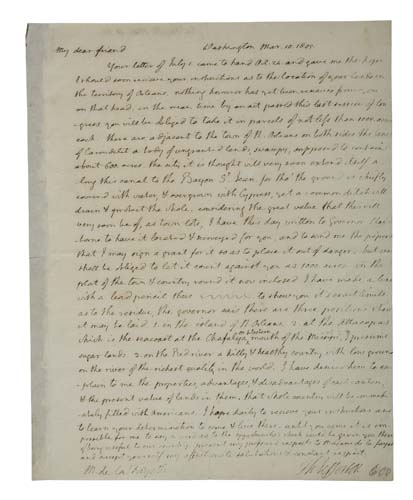 My dear friend Washington Mar. 10. 1805.
Your letter of July 1. came to hand Oct. 22. and gave me the hope
I should soon receive your instructions as to the location of your lands in
the territory of Orleans. nothing however has yet been received from you
on that head. in the mean time by an act passed the last session of Con-
gress you will be obliged to take it in parcels of not less than 1000. acres
each. there are adjacent to the town of N. Orleans on both sides the canal
of Carondelet a body of ungranted lands, swampy, supposed to contain
about 600 acres. the city it is thought will very soon extend itself a-
long this canal to the Bayou St. Jean. for tho' the ground is chiefly
covered with water, & overgrown with Cypress, yet a common ditch will
drain & protect the whole. considering the great value that this will
very soon be of, as town lots, I have this day written to Governor Clai-
borne to have it located & surveyed for you, and to send me the papers
that I may sign a grant for it so as to place it out of danger. but we
shall be obliged to let it count against you as 1000 acres. in the
plat of the town & country round it now inclosed I have made a line
with a lead pencil thus to show you its exact limits.
as to the residue, the governor says there are three positions where
it may be laid 1. on the island of N. Orleans. 2. at the Attacapas
which is the seacoast at the Chafalaya mouth of the Missipi, I presume
sugar lands. 3. on the Red river a hilly & healthy country with low grounds
on the river of the richest quality in the world. I have desired him to ex-
plain to me the properties, advantages, & disadvantages of each station,
& the present value of lands in them. that whole country will be imme-
diately filled with Americans. I hope daily to receive your instructions and
to learn your determination to come & live there. until you come it is im-
possible for me to say a word as to the
of being useful to our country. present my respects to Madame de la Fayette
and accept yourself my affectionate salutations & constant respect.
M. de la Fayette Th: Jefferson